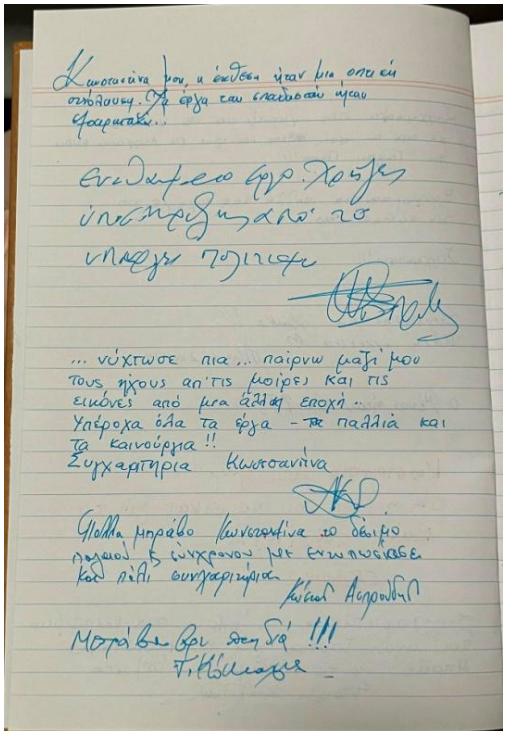 Κωνσταντίνα μου, η έκθεση ήταν μια οπτική
απόλαυση. Τα έργα των σπουδαστών ήταν
εξαιρετικά...
Ενδιαφέρον έργο. Χρήζει
υποστήριξης από το
υπουργείο Πολιτισμού
... νύχτωσε πια... παίρνω μαζί μου
τους ήχους απ' τις μοίρες και τις
εικόνες από μια άλλη εποχή..
Υπέροχα όλα τα έργα - τα παλλιά και
τα καινούργια!!
Συγχαρητήρια Κωνσταντίνα
Πολλά μπράβο Κωνσταντίνα το δέσιμο
παλαιού & σύγχρονου με εντυπωσίασε
και πάλι συγχαρητήρια
Κώστας
Μπράβο βρε παιδιά !!!